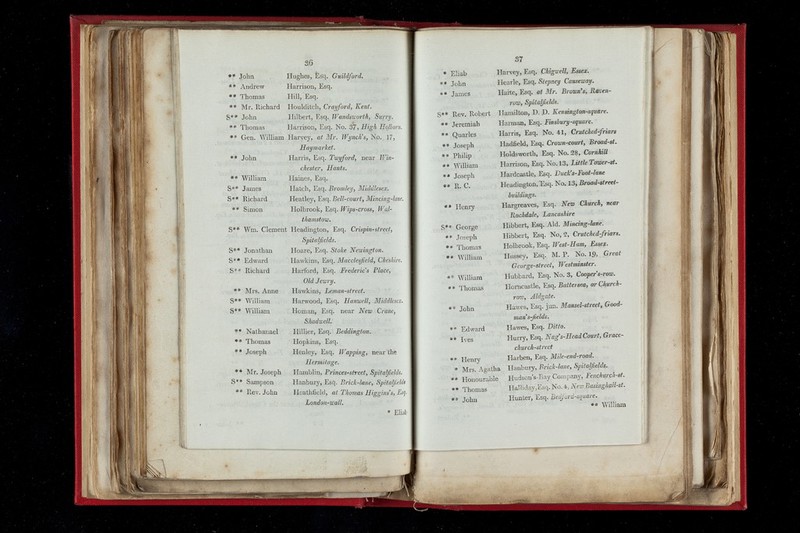 36
** John Hughes, Esq. Guildford.
** Andrew Harrison, Esq.
** Thomas Hill, Esq.
** Mr. Richard Houlditch, Crayford, Kent.
S** John Hilbert, Esq. Wandsworth, Surry.
** Thomas Harrison, Esq. No. 37, High Holborn.
** Gen. William Harvey, at Mr. Wynch's, No. 17,
Haymarket.
** John Harris, Esq. Twyford, near Win-
chester, Hants.
** William Haines, Esq.
S** James Hatch, Esq. Bromley, Middlesex.
S** Richard Heatley, Esq. Bell-court, Mincing-lane.
** Simon Holbrook, Esq. Wips-cross, Wal-
thamstow.
S** Wm. Clement Headington, Esq. Crispin-street,
Spitalfields.
S** Jonathan Hoare, Esq. Stoke Newington.
S** Edward Hawkins, Esq. Macclesfield, Cheshire.
S** Richard Harford, Esq. Frederic's Place,
Old Jewry.
** Mrs. Anne Hawkins, Leman-street.
S** William Harwood, Esq. Hanwell, Middlesex.
S** William Homan, Esq. near New Crane,
Shadwell.
** Nathanael Hillier, Esq. Beddington.
** Thomas Hopkins, Esq.
** Joseph Henley, Esq. Wapping, near the
Hermitage.
** Mr. Joseph Hamblin, Princes-street, Spitalfields.
S** Sampson Hanbury, Esq. Brick-lane, Spitalfields
** Rev. John Heathfield, at Thomas Higgins's, Esq.
London-wall.
* Eliab
37
* Eliab Harvey, Esq. Chigwell, Essex.
** John Hearle, Esq. Stepney Causeway.
** James Haite, Esq. at Mr. Brown's, Raven-
row, Spitalfields.
S** Rev. Robert Hamilton, D. D. Kensington-square.
** Jeremiah Harman, Esq. Finsbury-square.
** Quarles Harris, Esq. No. 41, Crutched-friars
** Joseph Hadfield, Esq. Crown-court, Broad-st.
** Philip Holdsworth, Esq. No. 28, Cornhill
** William Harrison, Esq. No. 13, Little Tower-st.
** Joseph Hardcastle, Esq. Duck's-Foot-lane
** R. C. Headington, Esq. No. 13, Broad-street-
buildings.
** Henry Hargreaves, Esq. New Church, near
Rochdale, Lancashire
S** George Hibbert, Esq. Ald. Mincing-lane.
** Joseph Hibbert, Esq. No. 2, Crutched-friars.
** Thomas Holbrook, Esq. West-Ham, Essex.
** William Hussey, Esq. M. P. No. 19, Great
George-street, Westminster.
** William Hubbard, Esq. No. 3, Cooper's-row.
** Thomas Horncastle, Esq. Battersea, or Church-
row, Aldgate.
** John Hawes, Esq. jun. Mansel-street, Good-
man's-fields.
** Edward Hawes, Esq. Ditto.
** Ives Hurry, Esq. Nag's-Head Court, Grace-
church-street
** Henry Harben, Esq. Mile-end-road.
* Mrs. Agatha Hanbury, Brick-lane, Spitalfields.
** Honourable Hudson's-Bay Company, Fenchurch-st.
** Thomas Halliday, Esq. No. 4, New Basinghall-st.
** John Hunter, Esq. Bedford-square.
** William